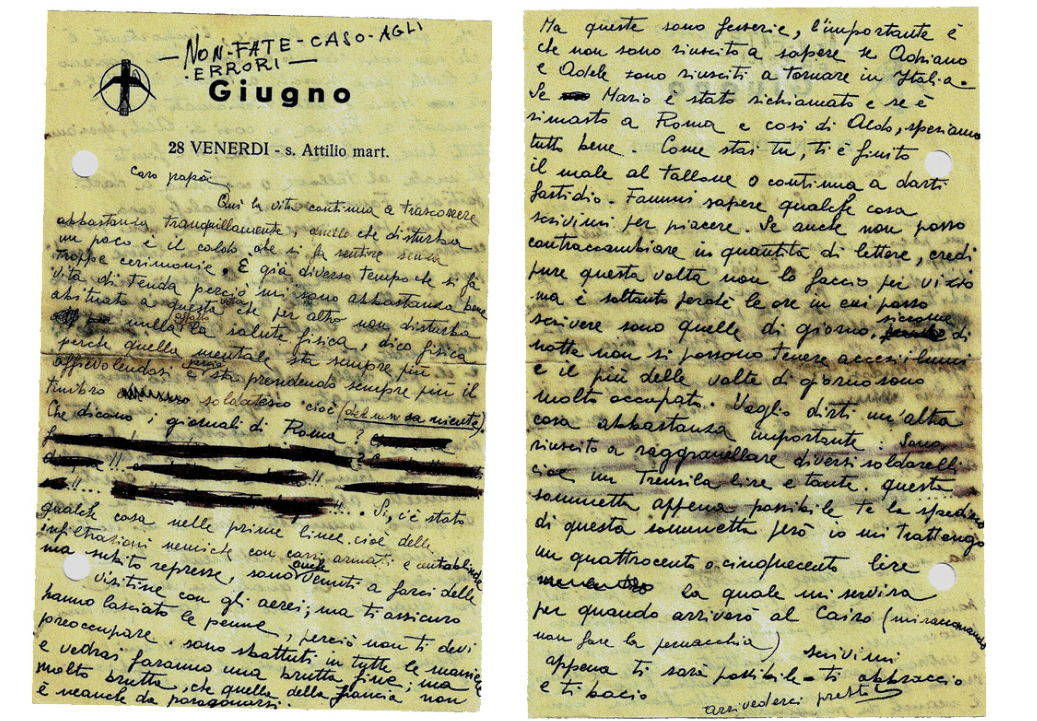 -NON-FATE-CASO-AGLI
ERRORI-
Giugno
28 VENERDI - s. Attilio mart.
Caro papà
Qui la vita continua a trascorrere
abbastanza tranquillamente, quello che disturba
un poco è il caldo che si fa sentire senza
troppe cerimonie. È già diverso tempo che si fa
vita di tenda perciò mi sono abbastanza bene
abituato a questa vita che per altro non disturba
nulla affatto la salute fisica, dico fisica
perché quella mentale sta sempre più
affievolendosi e sta prendendo sempre più il
timbro soldatesco cioè (del non sa niente).
Che dicono i giornali di Roma?
!!... !!
!!... !!... Si, c'è stato
qualche cosa nelle prime linee cioè delle
infiltrazioni nemiche con carri armati e autoblinde
ma subito represse, sono anche venuti a farci delle
visitine con gli aerei; ma ti assicuro
hanno lasciato le penne, perciò non ti devi
preoccupare. sono sbattuti in tutte le maniere
e vedrai faranno una brutta fine; ma
molto brutta, che quella della Francia non
è neanche da paragonarsi.
Ma queste sono fesserie, l'importante è
che non sono riuscito a sapere se Adriano
e Adele sono riusciti a tornare in Italia.
Se Mario è stato richiamato e se è
rimasto a Roma e così di Aldo, speriamo
tutto bene. Come stai tu, ti è finito
il male al tallone o continua a darti
fastidio. Fammi sapere qualche cosa
scrivimi per piacere. Se anche non posso
contraccambiare in quantità di lettere, credi
pure questa volta non lo faccio per vizio
ma è soltanto perché le ore in cui posso
scrivere sono quelle di giorno, siccome di
notte non si possono tenere accesi i lumi
e il più delle volte di giorno sono
molto occupato. Voglio dirti un'altra
cosa abbastanza importante: Sono
riuscito a raggranellare diversi soldarelli
cioè un Tremila lire e tante. questa
sommetta appena possibile te la spedirò
di questa sommetta però io mi trattengo
un quattrocento o cinquecento lire
la quale mi servirà
per quando arriverò al Cairo (mi raccomando
non fare la pernacchia) scrivimi
appena ti sarà possibile - ti abbraccio
e ti bacio
arrivederci presto